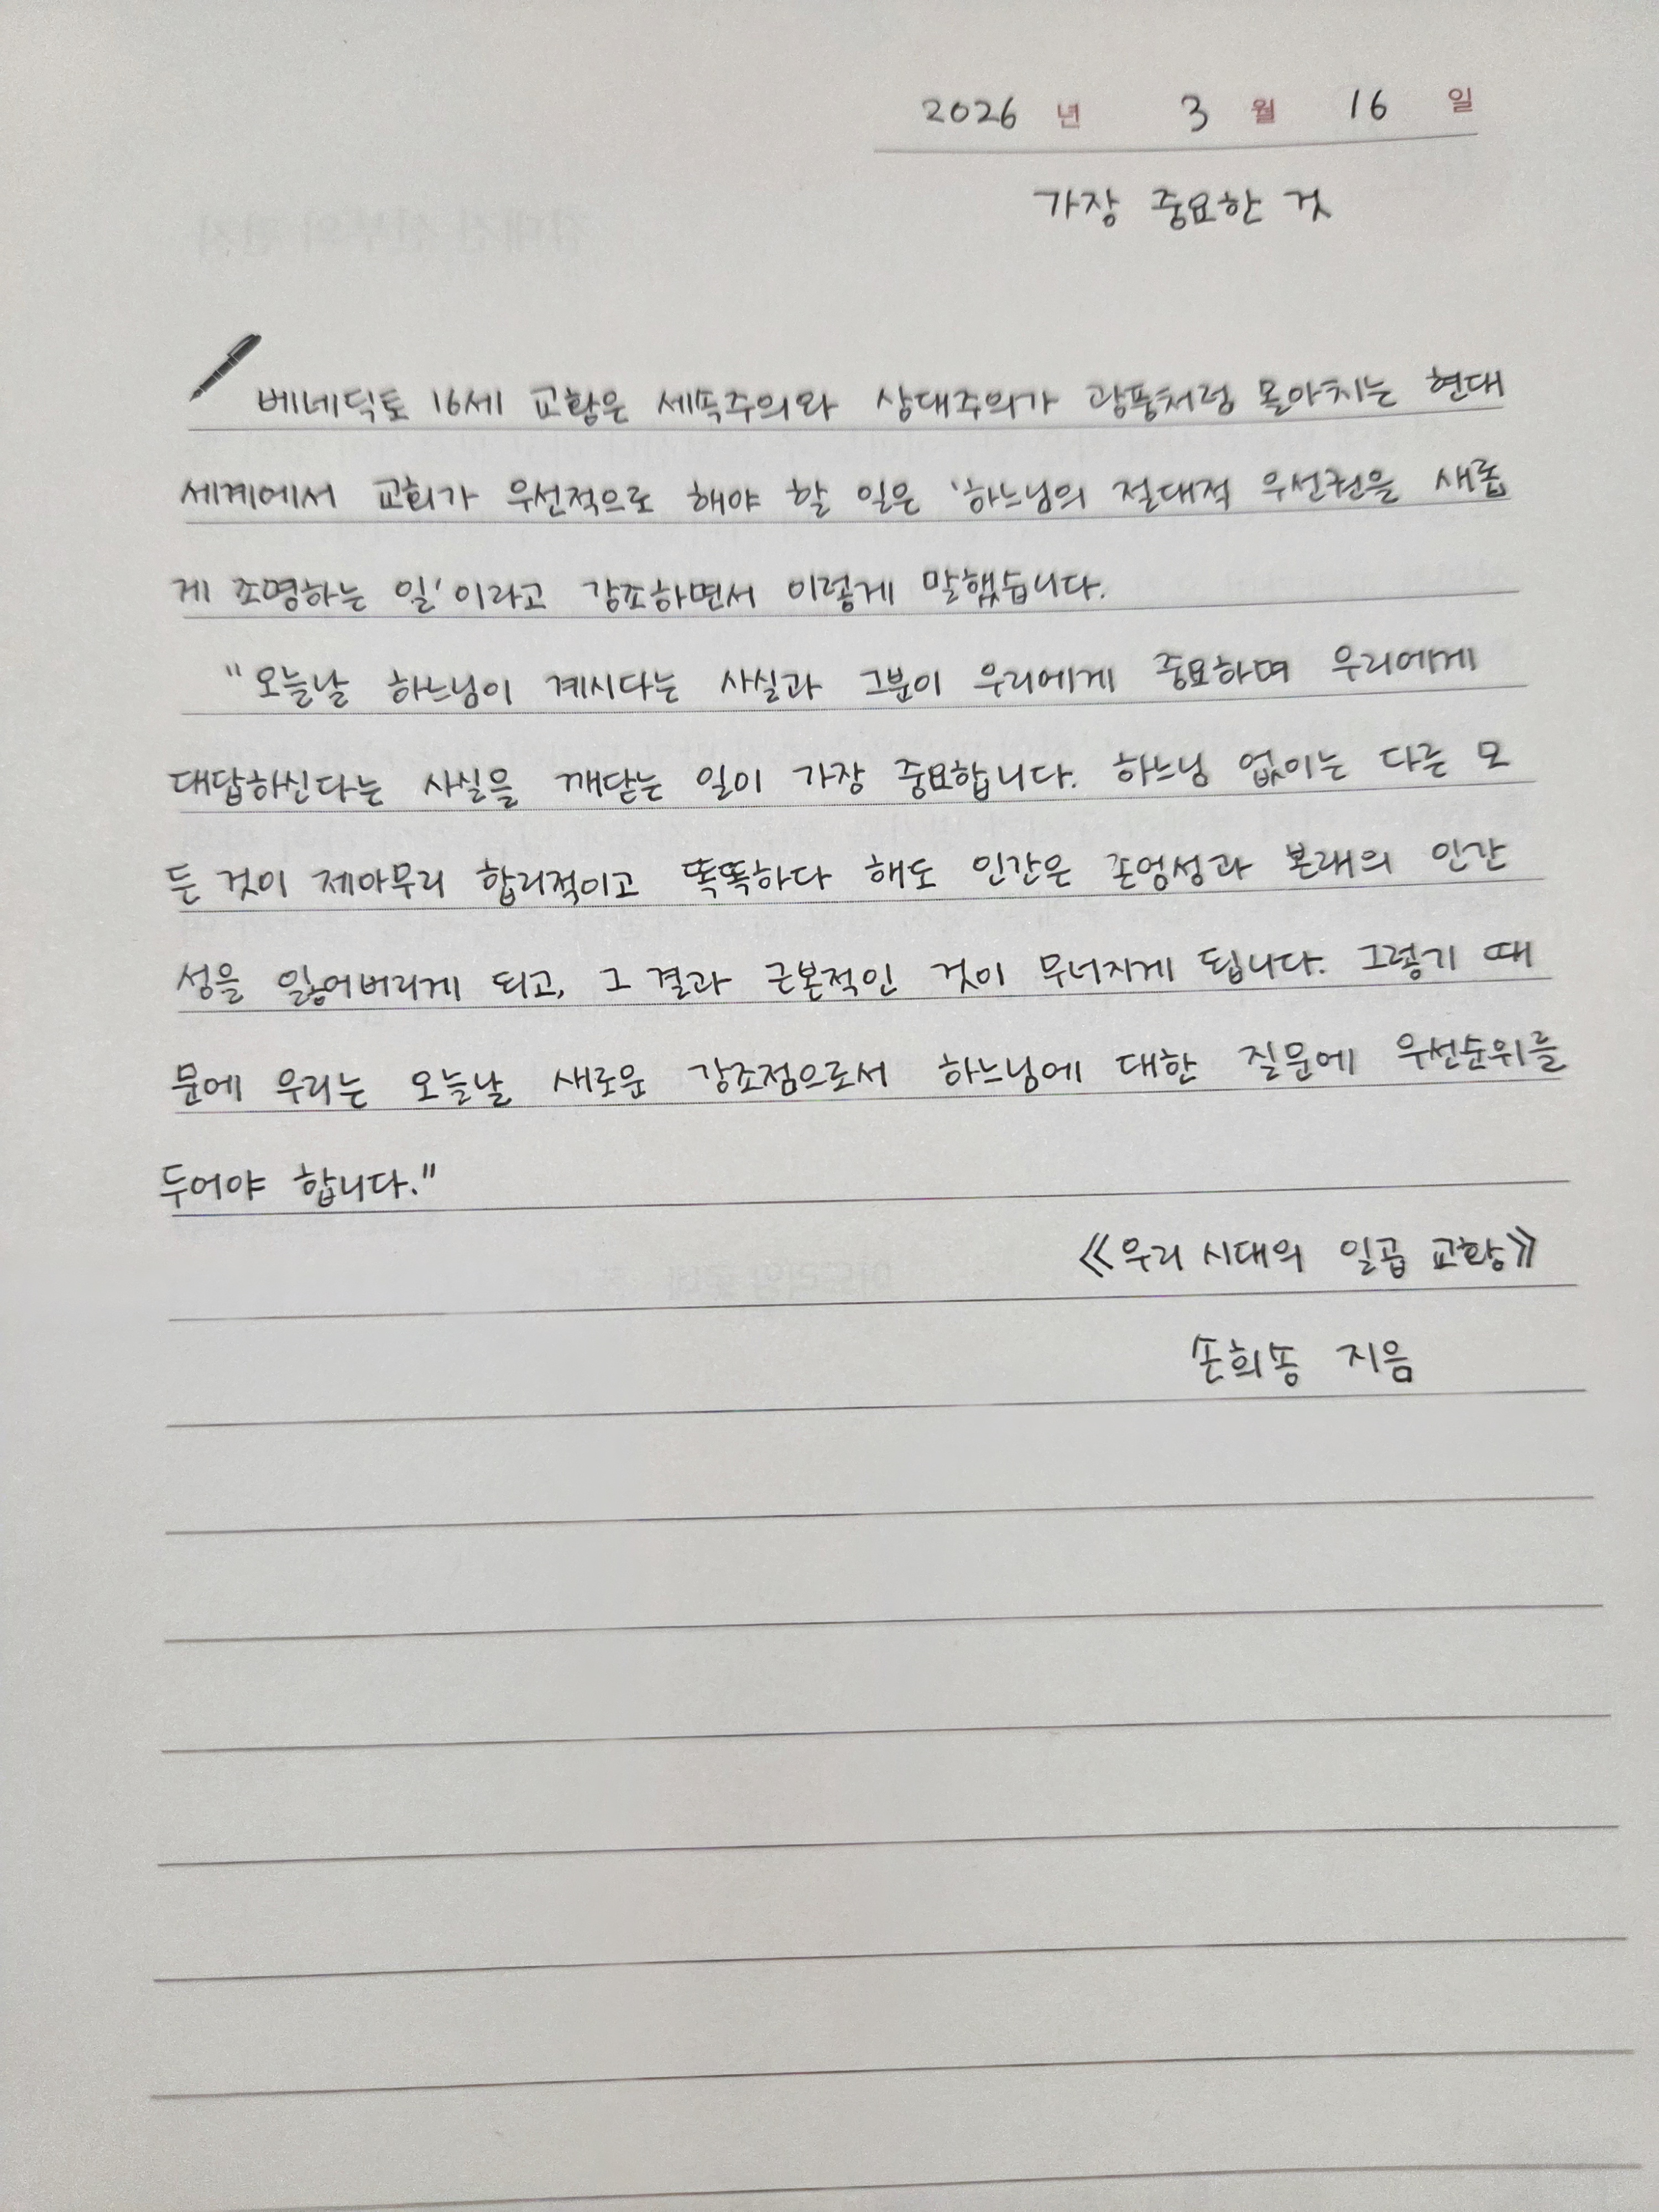 2026 년 3 월 16 일
가장 중요한 것
베네딕토 16세 교황은 세속주의와 상대주의가 광풍처럼 몰아치는 현대
세계에서 교회가 우선적으로 해야 할 일은 '하느님의 절대적 우선권을 새롭
게 조명하는 일'이라고 강조하면서 이렇게 말했습니다.
"오늘날 하느님이 계시다는 사실과 그분이 우리에게 중요하며 우리에게
대답하신다는 사실을 깨닫는 일이 가장 중요합니다. 하느님 없이는 다른 모
든 것이 제아무리 합리적이고 똑똑하다 해도 인간은 존엄성과 본래의 인간
성을 잃어버리게 되고, 그 결과 근본적인 것이 무너지게 됩니다. 그렇기 때
문에 우리는 오늘날 새로운 강조점으로서 하느님에 대한 질문에 우선순위를
두어야 합니다."
《우리 시대의 일곱 교황》
손희송 지음